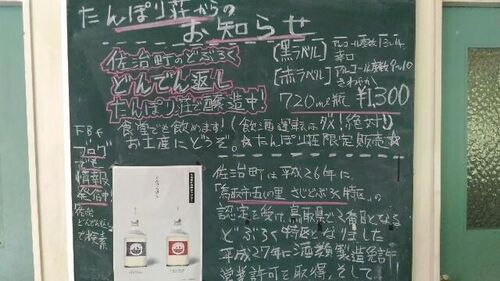 たんぽり荘からの
お知らせ
佐治町のどぶろく
どんでん返し
たんぽり荘で醸造中!
[黒ラベル] アルコール度数13~14
辛口
[赤ラベル] アルコール度数9~10
さわやか
720ml瓶 ¥1,300
食堂でも飲めます!(飲酒運転はダメ!絶対!)
お土産にどうぞ。☆たんぽり荘限定販売☆
FBや
ブログ
でも
情報
発信中!
佐治
どんでん返し
で検索
佐治町は平成26年に
「鳥取市五しの里さじどぶろく特区」の
認定を受け、鳥取県で2番目となる
どぶろく特区となりました
平成27年に酒類製造経
営業許可を取得、そして